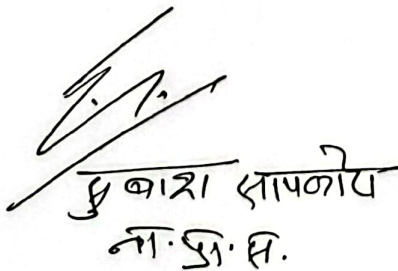 सुवाश सापकोटा
ना. प्रा. स.